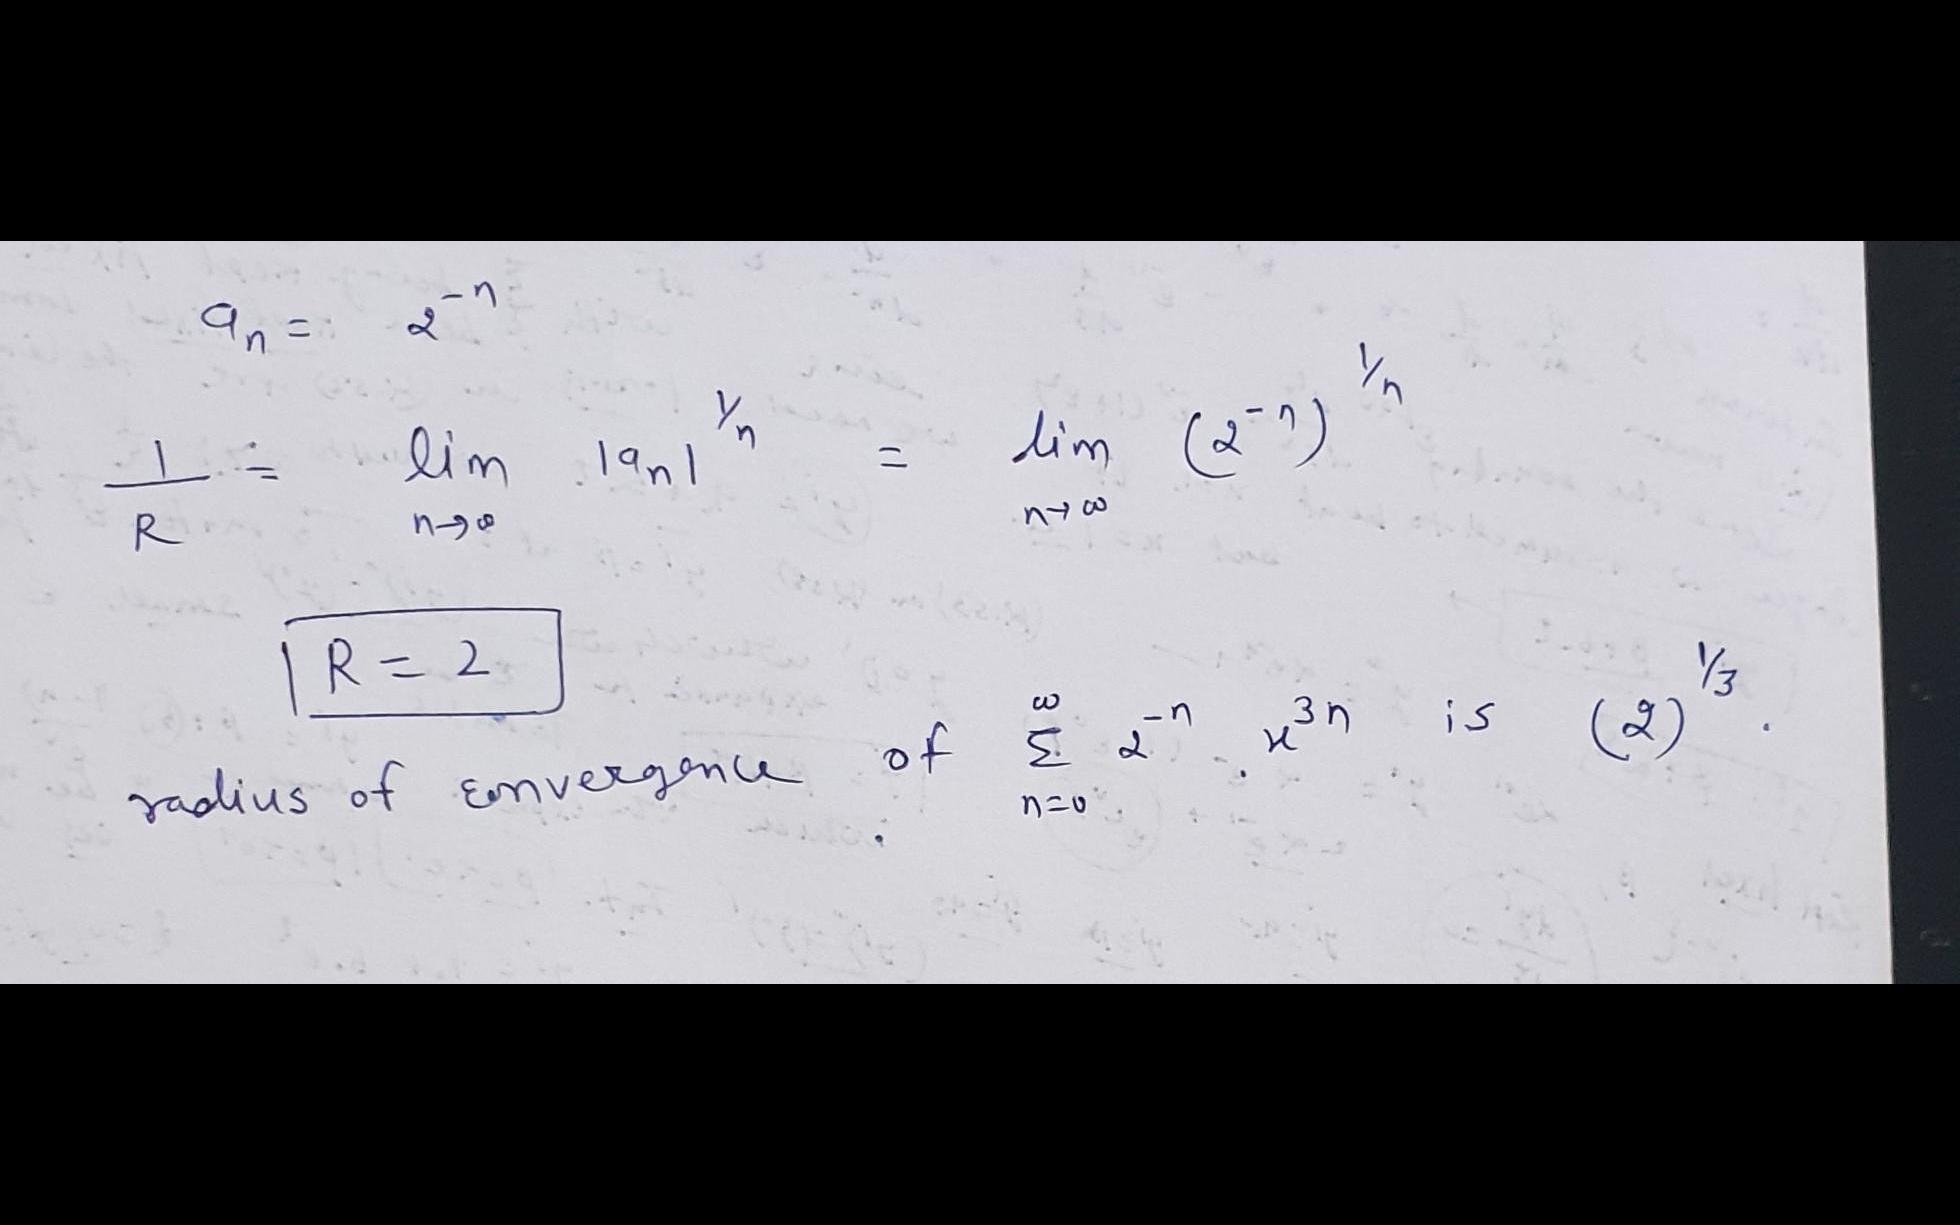 aₙ = 2⁻ⁿ
1/R = lim n→∞ |aₙ|^1/n = lim n→∞ (2⁻ⁿ)^1/n
R = 2
radius of convergence of ∞ Σ n=0 2⁻ⁿ . x³ⁿ is (2)^1/3 .